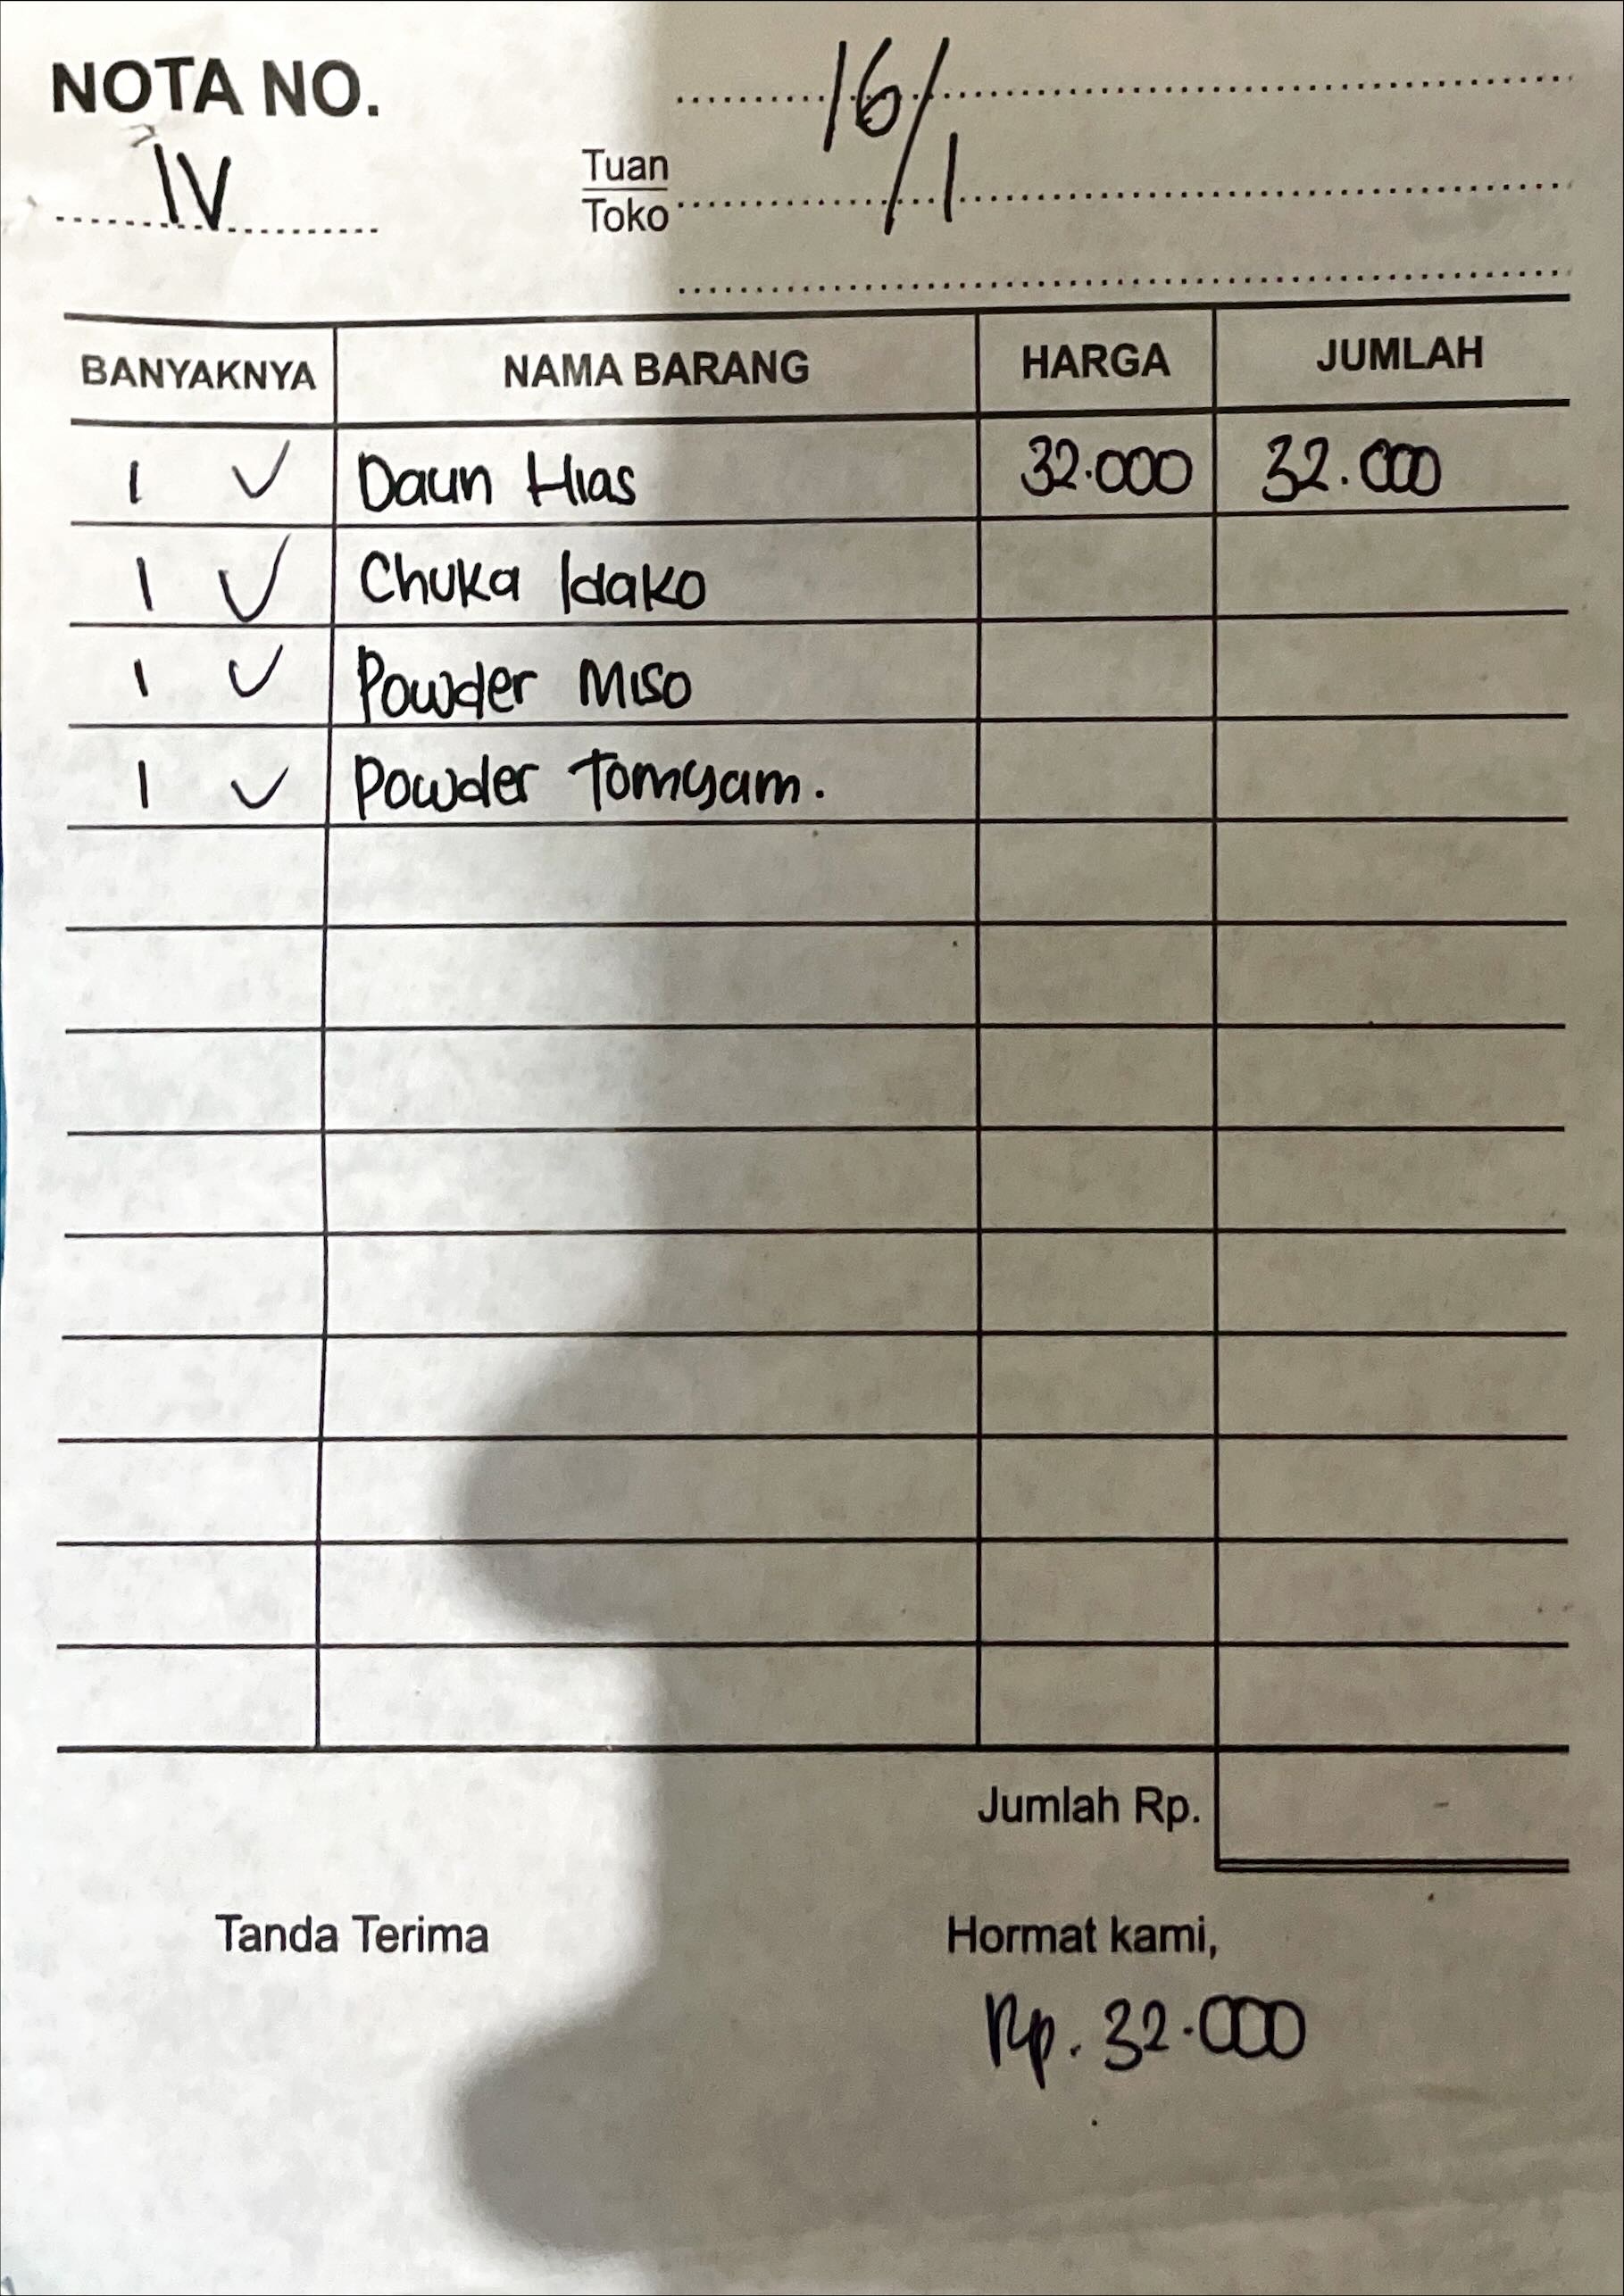 NOTA NO.
IV
16/1
Tuan
Toko
BANYAKNYA NAMA BARANG HARGA JUMLAH
1 ✓ Daun Hias 32.000 32.000
1 ✓ Chuka Idako
1 ✓ Powder Miso
1 ✓ Powder Tomyam.
Jumlah Rp.
Tanda Terima Hormat kami,
Rp. 32.000